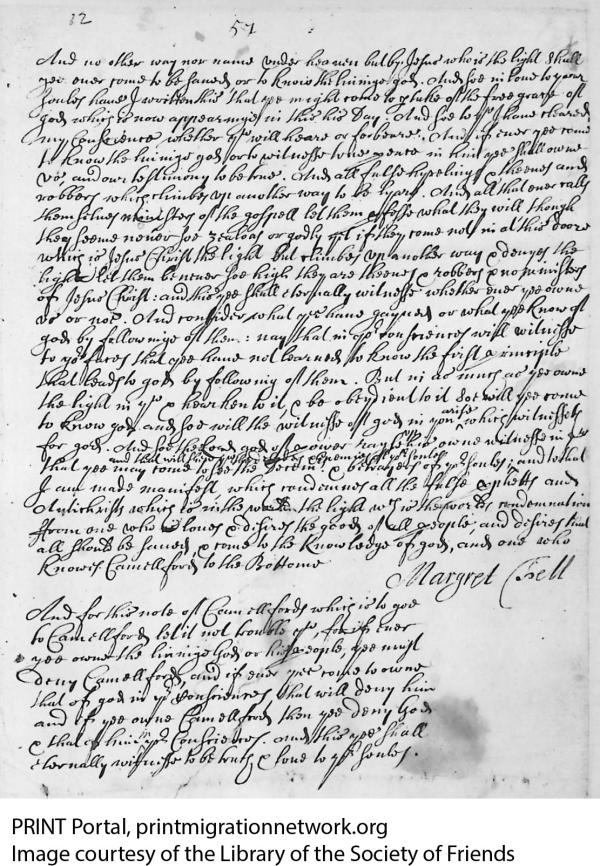 32
57
And no other way nor name vnder heaven but by Jesus who is the light shall
yee ever come to be saued, or to know the liuinge god. And soe in loue to your
soules haue I written this that yee might come to ptake of the free grace of
god which is now appearinge in this his Day, And soe to yu I haue cleared
my Conscience whether yu will heare or forbeare. And if ever yee come
to know the liuinge god, or to witnesse true peace in him yee shall owne
vs, and our testimony to be true. And all false hyrelings & theeues and
robbers which climbes vp another way to be And all that euer calls
themselues ministers of the gospell let them pfesse what they will though
they seeme neuer soe zealous or godly yet if they come not in at this doore
which is Jesus Christ the light but climbes vp another way & denyes the
light let them be neuer soe high they are theeues & robbers & no ministers
of Jesus Christ: and this yee shall eternally witnesse whether euer yee owne
vs or not. And consider what yee haue gayned or what yee know of
god by followinge of them: nay that in yor consciences will witnesse
to yor faces that yee haue not learned to know the first principle
that leads to god by followinge of them. But in as much as yee owne
the light in yu & hearken to it, & be obedient to it soe will yee come
to know god and soe will the witnesse of god in you arise which witnesseth
for god. And soe the Lord god of power rayse his owne witnesse in yu
that yee may come to see the & betrayers of yor soules: and to that
I am made manifest which condemnes all the false pphetts and
Antichrists which is in the the light wch is the worlds condemnation
ffrom one who loues & desires the good of all people, and desires that
all should be saued, & come to the knowledge of god, and one who
knowes Camellford to the Bottome
Margret ffell
And for this note of Camellfords which is to goe
to Camellford let it not trouble yu, for if euer
yee owne the liuinge God or his people, yee must
deny Camellford, and if euer yee come to owne
that of god in yor Consciences that will deny him
and if yee owne Camellford then yee deny God
& that of him in yor Consciences and this yee shall
eternally witnesse to be truth & loue to yor soules.
PRINT Portal, printmigrationnetwork.org
Image courtesy of the Library of the Society of Friends